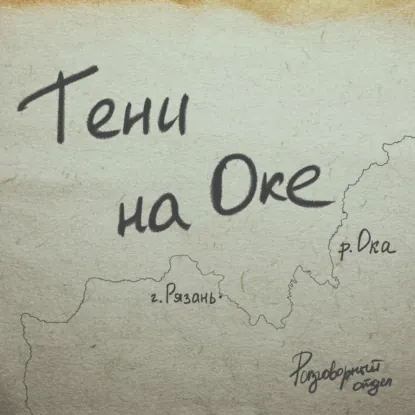 Тени
на Оке
р. Ока
г. Рязань
Разговорный
отдел